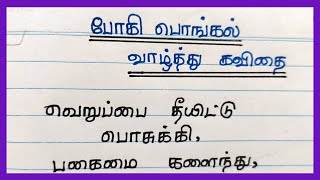 போகி பொங்கல்
வாழ்த்து கவிதை
வெறுப்பை தீயிட்டு
பொசுக்கி,
பகைமை களைந்து,